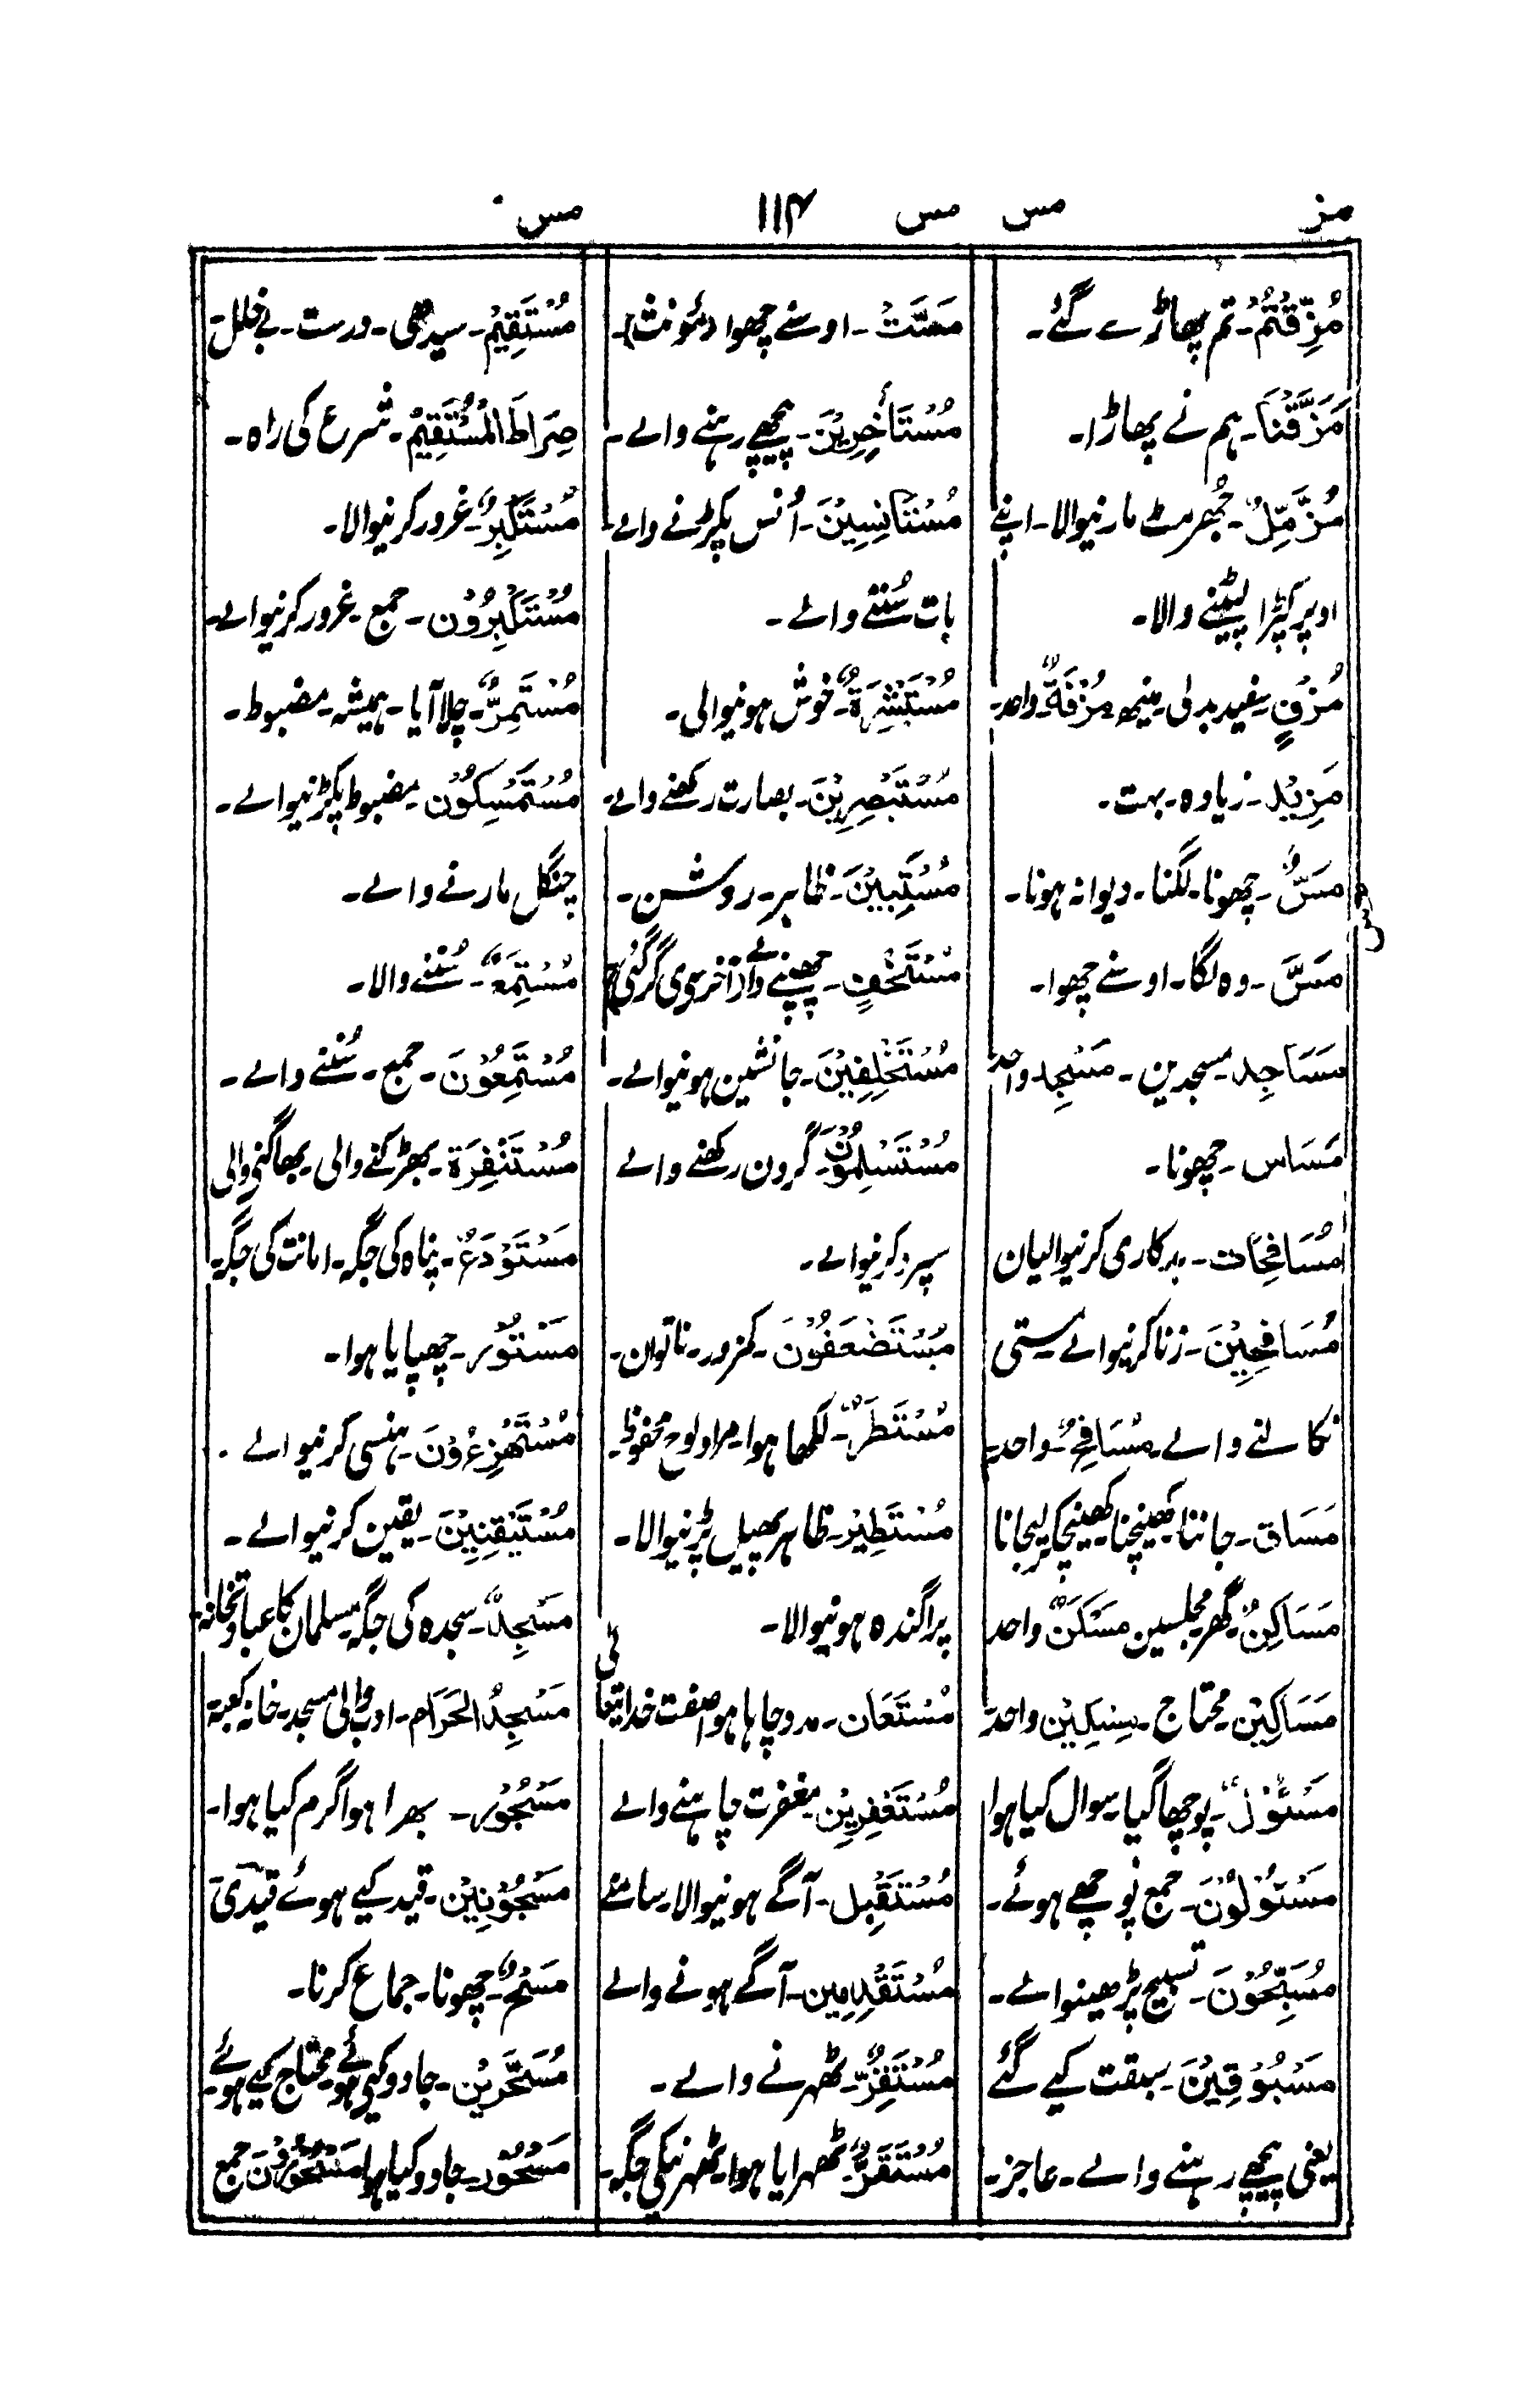 مز مس مس ۱۱۴ مس
مُزِّقْتُمْ۔ تم پھاڑے گئے۔
مَزَّقْنَا۔ ہم نے پھاڑا۔
مُزَّمِّلٌ۔ جُھرمٹ مارنیوالا۔ اپنے
اوپر کپڑا لپیٹنے والا۔
مُزْنٍ۔ سفید بدلی۔ مینھ۔ مُزْنَةٌ۔ واحد۔
مَزِیْد۔ زیادہ۔ بہت۔
مَسٌّ۔ چھونا۔ لگنا۔ دیوانہ ہونا۔
مَسَّ۔ وہ لگا۔ اوسنے چھوا۔
مَسَاجِد۔ مسجدین۔ مَسْجِد واحد
مَسَاس۔ چھونا۔
مُسَافِحَات۔ بدکاری کرنیوالیان
مُسَافِحِیْنَ۔ زنا کرنیوالے۔ مستی
نکالنے والے۔ مُسَافِحٌ۔ واحد۔
مَسَاق۔ جاننا کھینچنا کھینچکر لیجانا
مَسَاکِنُ۔ گھر۔ مجلسین مَسْکَنٌ واحد
مَسَاکِیْن۔ محتاج۔ مِسْکِیْن واحد۔
مَسْئُوْلٌ۔ پوچھا گیا۔ سوال کیا ہوا
مَسْئُوْلُوْنَ۔ جمع پوچھے ہوئے۔
مُسَبِّحُوْنَ۔ تسبیح پڑھینوالے۔
مَسْبُوْقِیْنَ۔ سبقت کیے گئے
یعنی پیچھے رہنے والے۔ عاجز۔
مَسَّتْ۔ اوسنے چھوا (مؤنث)۔
مُسْتَأْخِرِیْنَ۔ پیچھے رہنے والے۔
مُسْتَانِسِیْنَ۔ اُنس پکڑنے والے۔
بات سُننے والے۔
مُسْتَبْشِرَةٌ۔ خوش ہونیوالی۔
مُسْتَبْصِرِیْنَ۔ بصارت رکھنے والے۔
مُسْتَبِیْنَ۔ ظاہر۔ روشن۔
مُسْتَخْفٍ۔ چھپنے والے (آخر سے ی گر گئی ہے)
مُسْتَخْلِفِیْنَ۔ جانشین ہونیوالے۔
مُسْتَسْلِمُوْنَ۔ گردن رکھنے والے
سپرد کرنیوالے۔
مُسْتَضْعَفُوْنَ۔ کمزور۔ ناتوان۔
مُسْتَطَرٌ۔ لکھا ہوا۔ مراد لوح محفوظ۔
مُسْتَطِیْر۔ ظاہر پھیل پڑنیوالا۔
پراگندہ ہونیوالا۔
مُسْتَعَان۔ مدد چاہا ہوا صفت خدایتعالی
مُسْتَغْفِرِیْن۔ مغفرت چاہنے والے
مُسْتَقْبِل۔ آگے ہونیوالا۔ سامنے
مُسْتَقْدِمِین۔ آگے ہونے والے
مُسْتَقِرٌّ۔ ٹھہرنے والے۔
مُسْتَقَرٌّ۔ ٹھہرایا ہوا۔ ٹھہرنیکی جگہ۔
مُسْتَقِیْمُ۔ سیدھی۔ درست۔ بے خلل۔
صِرَاطَ الْمُسْتَقِیْمَ۔ شرع کی راہ۔
مُسْتَکْبِرٌ۔ غرور کرنیوالا۔
مُسْتَکْبِرُوْن۔ جمع۔ غرور کرنیوالے۔
مُسْتَمِرٌّ۔ چلا آیا۔ ہمیشہ۔ مضبوط۔
مُسْتَمْسِکُوْن۔ مضبوط پکڑنیوالے۔
چنگل مارنے والے۔
مُسْتَمِعٌ۔ سُننے والا۔
مُسْتَمِعُوْنَ۔ جمع۔ سُننے والے۔
مُسْتَنْفِرَة۔ بھڑکنے والی۔ بھاگنے والی
مُسْتَوْدَعٌ۔ پناہ کی جگہ۔ امانت کی جگہ۔
مَسْتُوْر۔ چھپایا ہوا۔
مُسْتَهْزِءُوْنَ۔ ہنسی کرنیوالے۔
مُسْتَیْقِنِیْنَ۔ یقین کرنیوالے۔
مَسْجِدٌ۔ سجدہ کی جگہ۔ مسلمان کا عبادتخانہ۔
مَسْجِدُ الْحَرَام۔ ادب والی مسجد۔ خانہ کعبہ
مَسْجُوْر۔ بھرا ہوا گرم کیا ہوا۔
مَسْجُوْنِیْن۔ قید کیے ہوئے قیدی
مَسْحٌ۔ چھونا۔ جماع کرنا۔
مُسَحَّرِیْن۔ جادو کیے ہوئے۔ محتاج کیے ہوئے۔
مَسْحُوْر۔ جادو کیا ہوا مَسْحُوْرُوْنَ جمع
مس